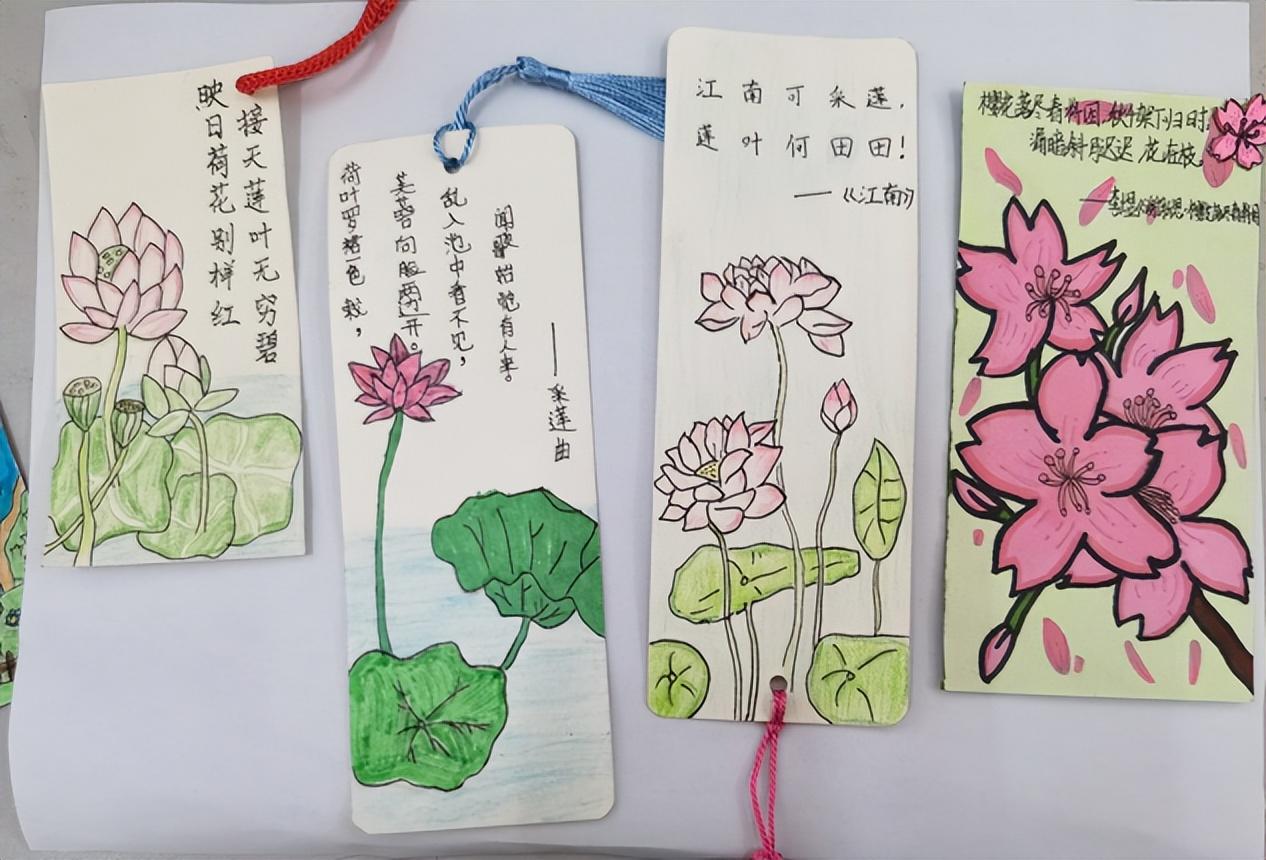 接天莲叶无穷碧
映日荷花别样红
荷叶罗裙一色裁，
芙蓉向脸两边开。
乱入池中看不见，
闻歌始觉有人来。
——采莲曲
江南可采莲，
莲叶何田田！
——《江南》
樱花落尽春将困，秋千架下归时。
漏暗斜月迟迟花在枝。
——李煜